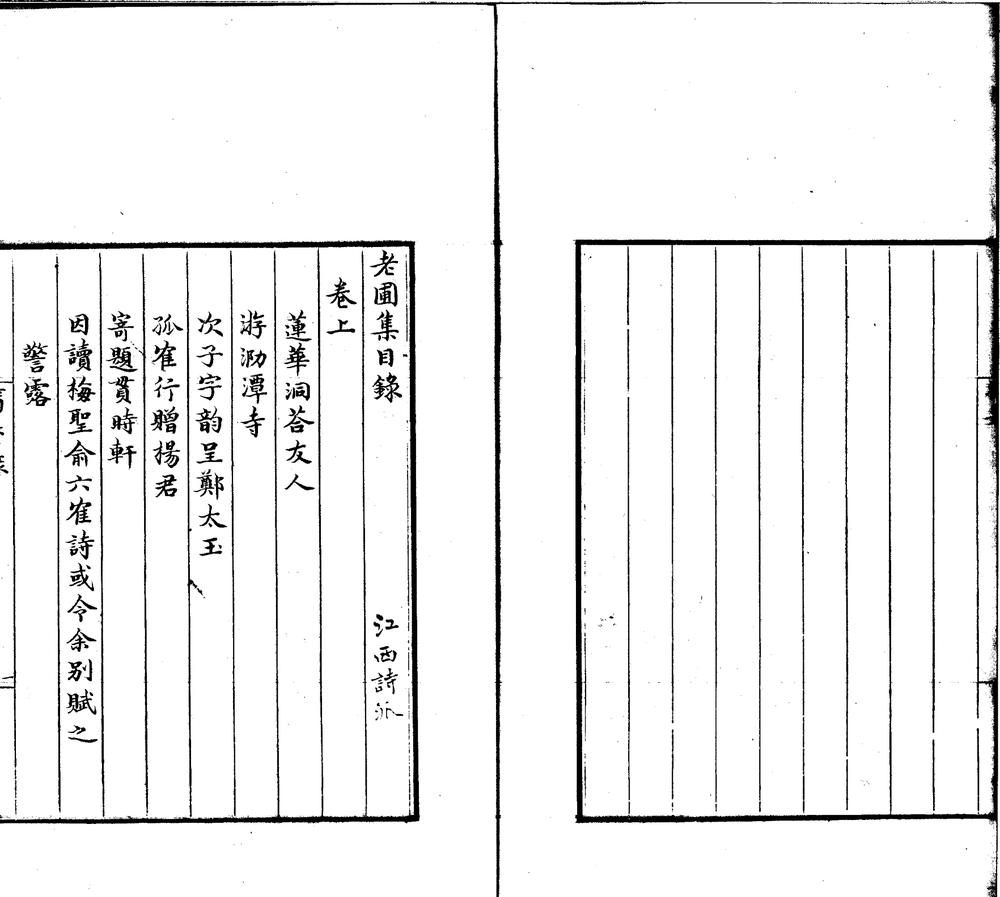 老圃集目錄 江西詩派
卷上
蓮華洞荅友人
游泐潭寺
次子字韵呈鄭太玉
孤隺行贈揚君
寄題貫時軒
因讀梅聖俞六隺詩或令余別賦之
警露